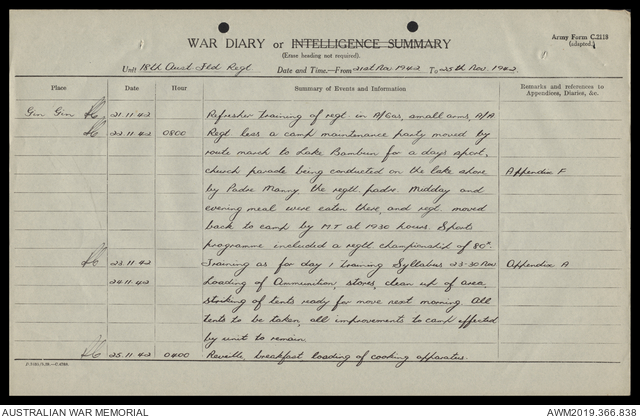 Army Form C.2118
(adapted.)
WAR DIARY or INTELLIGENCE SUMMARY
(Erase heading not required).
Unit 18th Aust Fld Regt Date and Time—From 21st Nov 1942 To 25th Nov. 1942.
Place Date Hour Summary of Events and Information Remarks and references to Appendices, Diaries, &c.
Gin Gin 21.11.42 Refresher training of regt in A/Gas, small arms, A/A
22.11.42 0800 Regt less a camp maintenance party moved by
route march to Lake Bambun for a days sport,
church parade being conducted on the lake shore Appendix F
by Padre Manny the regtl. padre. Midday and
evening meal were eaten there, and regt. moved
back to camp by M.T at 1930 hours. Sports
programme included a regtl championship of 80".
23.11.42 Training as for day 1 Training Syllabus 23-30 Nov Appendix A
24.11.42 Loading of Ammunition, stores, clean up of area,
striking of tents ready for move next morning. All
tents to be taken, all improvements to camp effected
by unit to remain.
25.11.42 0400 Reveille, breakfast loading of cooking apparatus.
AUSTRALIAN WAR MEMORIAL AWM2019.366.838